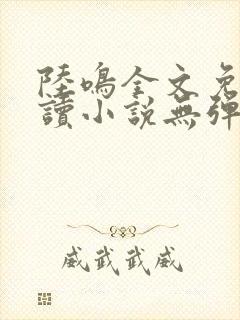 陸鳴全文免
讀小說無彈
威武武威